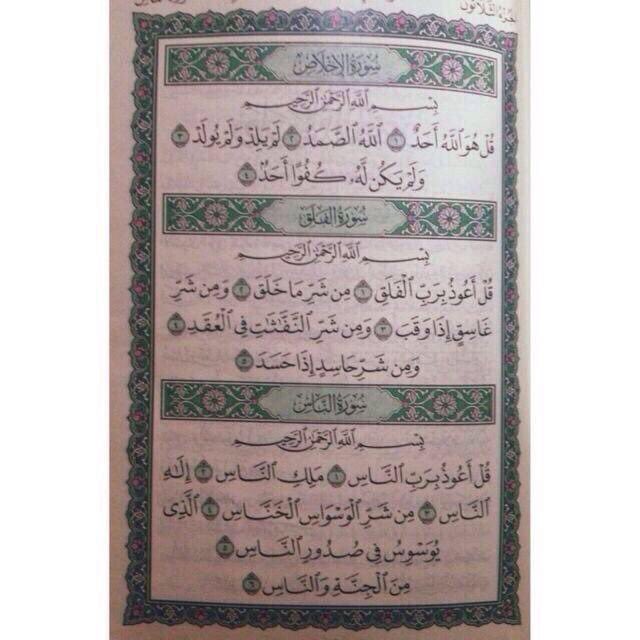 الجزء الثلاثون
سُورَةُ الإِخْلَاصِ
بِسْمِ اللَّهِ الرَّحْمَٰنِ الرَّحِيمِ
قُلْ هُوَ ٱللَّهُ أَحَدٌ ١ ٱللَّهُ ٱلصَّمَدُ ٢ لَمْ يَلِدْ وَلَمْ يُولَدْ ٣
وَلَمْ يَكُن لَّهُۥ كُفُوًا أَحَدٌۢ ٤
سُورَةُ الفَلَقِ
بِسْمِ اللَّهِ الرَّحْمَٰنِ الرَّحِيمِ
قُلْ أَعُوذُ بِرَبِّ ٱلْفَلَقِ ١ مِن شَرِّ مَا خَلَقَ ٢ وَمِن شَرِّ
غَاسِقٍ إِذَا وَقَبَ ٣ وَمِن شَرِّ ٱلنَّفَّٰثَٰتِ فِى ٱلْعُقَدِ ٤
وَمِن شَرِّ حَاسِدٍ إِذَا حَسَدَ ٥
سُورَةُ النَّاسِ
بِسْمِ اللَّهِ الرَّحْمَٰنِ الرَّحِيمِ
قُلْ أَعُوذُ بِرَبِّ ٱلنَّاسِ ١ مَلِكِ ٱلنَّاسِ ٢ إِلَٰهِ
ٱلنَّاسِ ٣ مِن شَرِّ ٱلْوَسْوَاسِ ٱلْخَنَّاسِ ٤ ٱلَّذِى
يُوَسْوِسُ فِى صُدُورِ ٱلنَّاسِ ٥
مِنَ ٱلْجِنَّةِ وَٱلنَّاسِ ٦